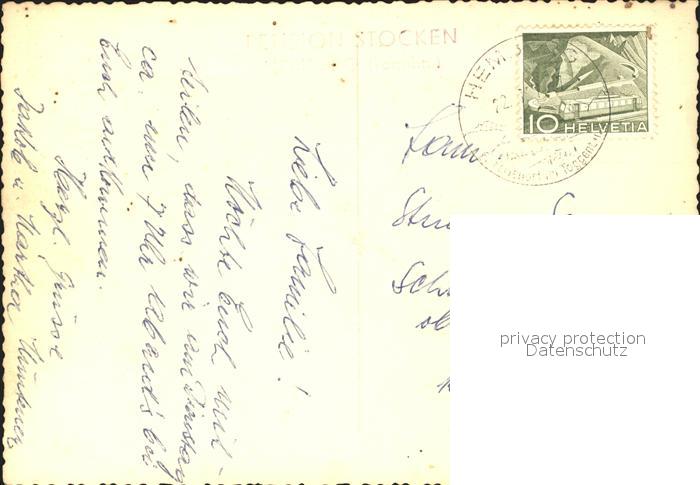 PENSION STOCKEN
HEM
22.
Toggenb.
10 HELVETIA
Liebe Familie!
Möchte Euch mit-
teilen, dass wir am Dienstag
ca. um 7 Uhr Abends bei
Euch ankommen.
Herzl. Grüsse
Jakob u. Martha
Fam
Schw
privacy protection
Datenschutz